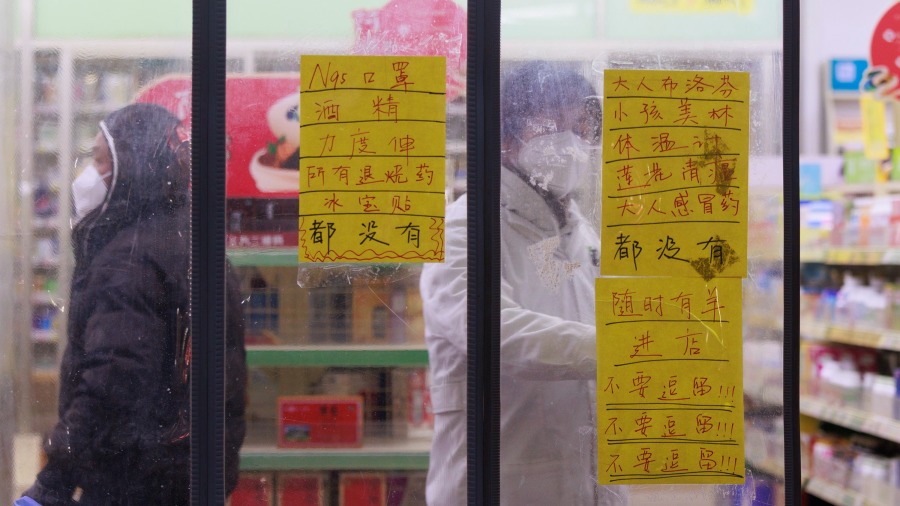 N95口罩
酒精
力度伸
所有退烧药
冰宝贴
都没有
大人布洛芬
小孩美林
体温计
莲花清温
大人感冒药
都没有
随时有羊
进店
不要逗留!!!
不要逗留!!!
不要逗留!!!